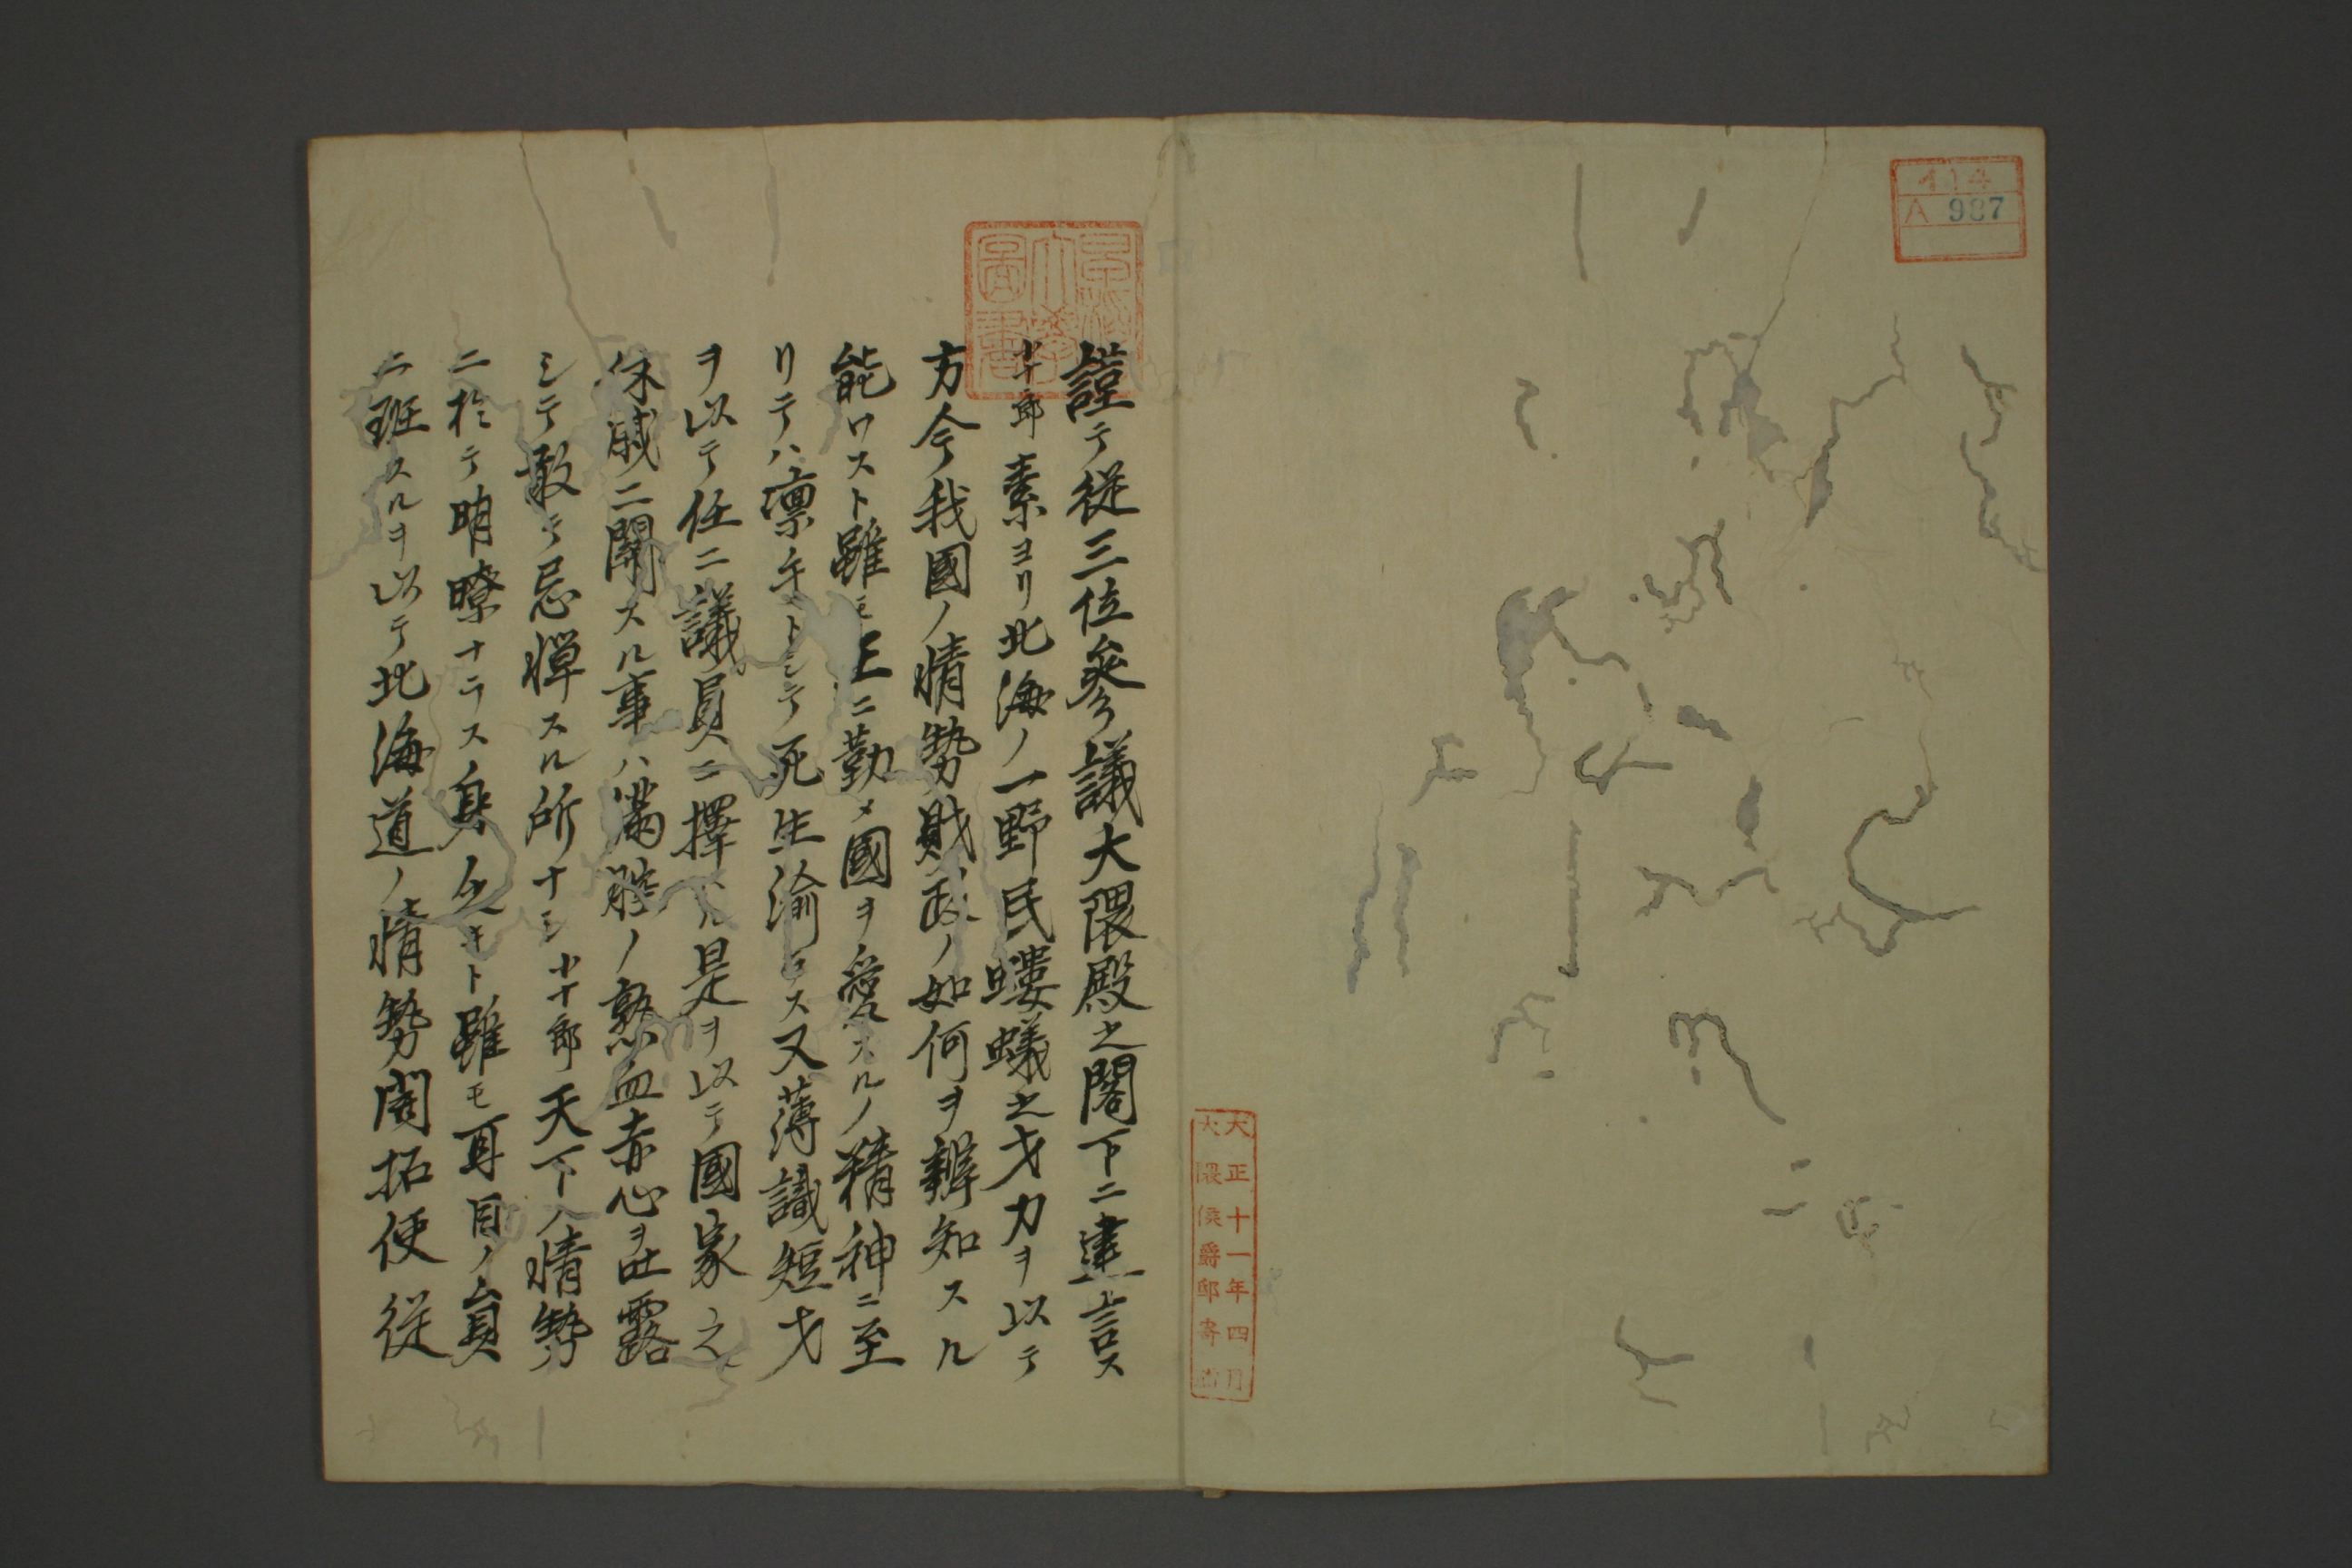 414
A 987
大正十一年四月
大隈侯爵邸寄贈
謹テ從三位參議大隈殿之閣下ニ建言ス
小十郎素ヨリ北海ノ一野民螻蟻之才力ヲ以テ
方今我國ノ情勢財政ノ如何ヲ辨知スル
能ワスト雖モ王ニ勤メ國ヲ愛スルノ精神ニ至
リテハ凛乎トシテ死生渝ラス又薄識短才
ヲ以テ任ニ議員ニ擇ハル是ヲ以テ國家之
休戚ニ關スル事ハ滿腔ノ熟血赤心ヲ吐露
シテ敢テ忌憚スル所ナシ小十郎天下ノ情勢
ニ於テ明瞭ナラス身ノ如キト雖モ耳目ノ員
ニ班スルヲ以テ北海道ノ情勢開拓使從